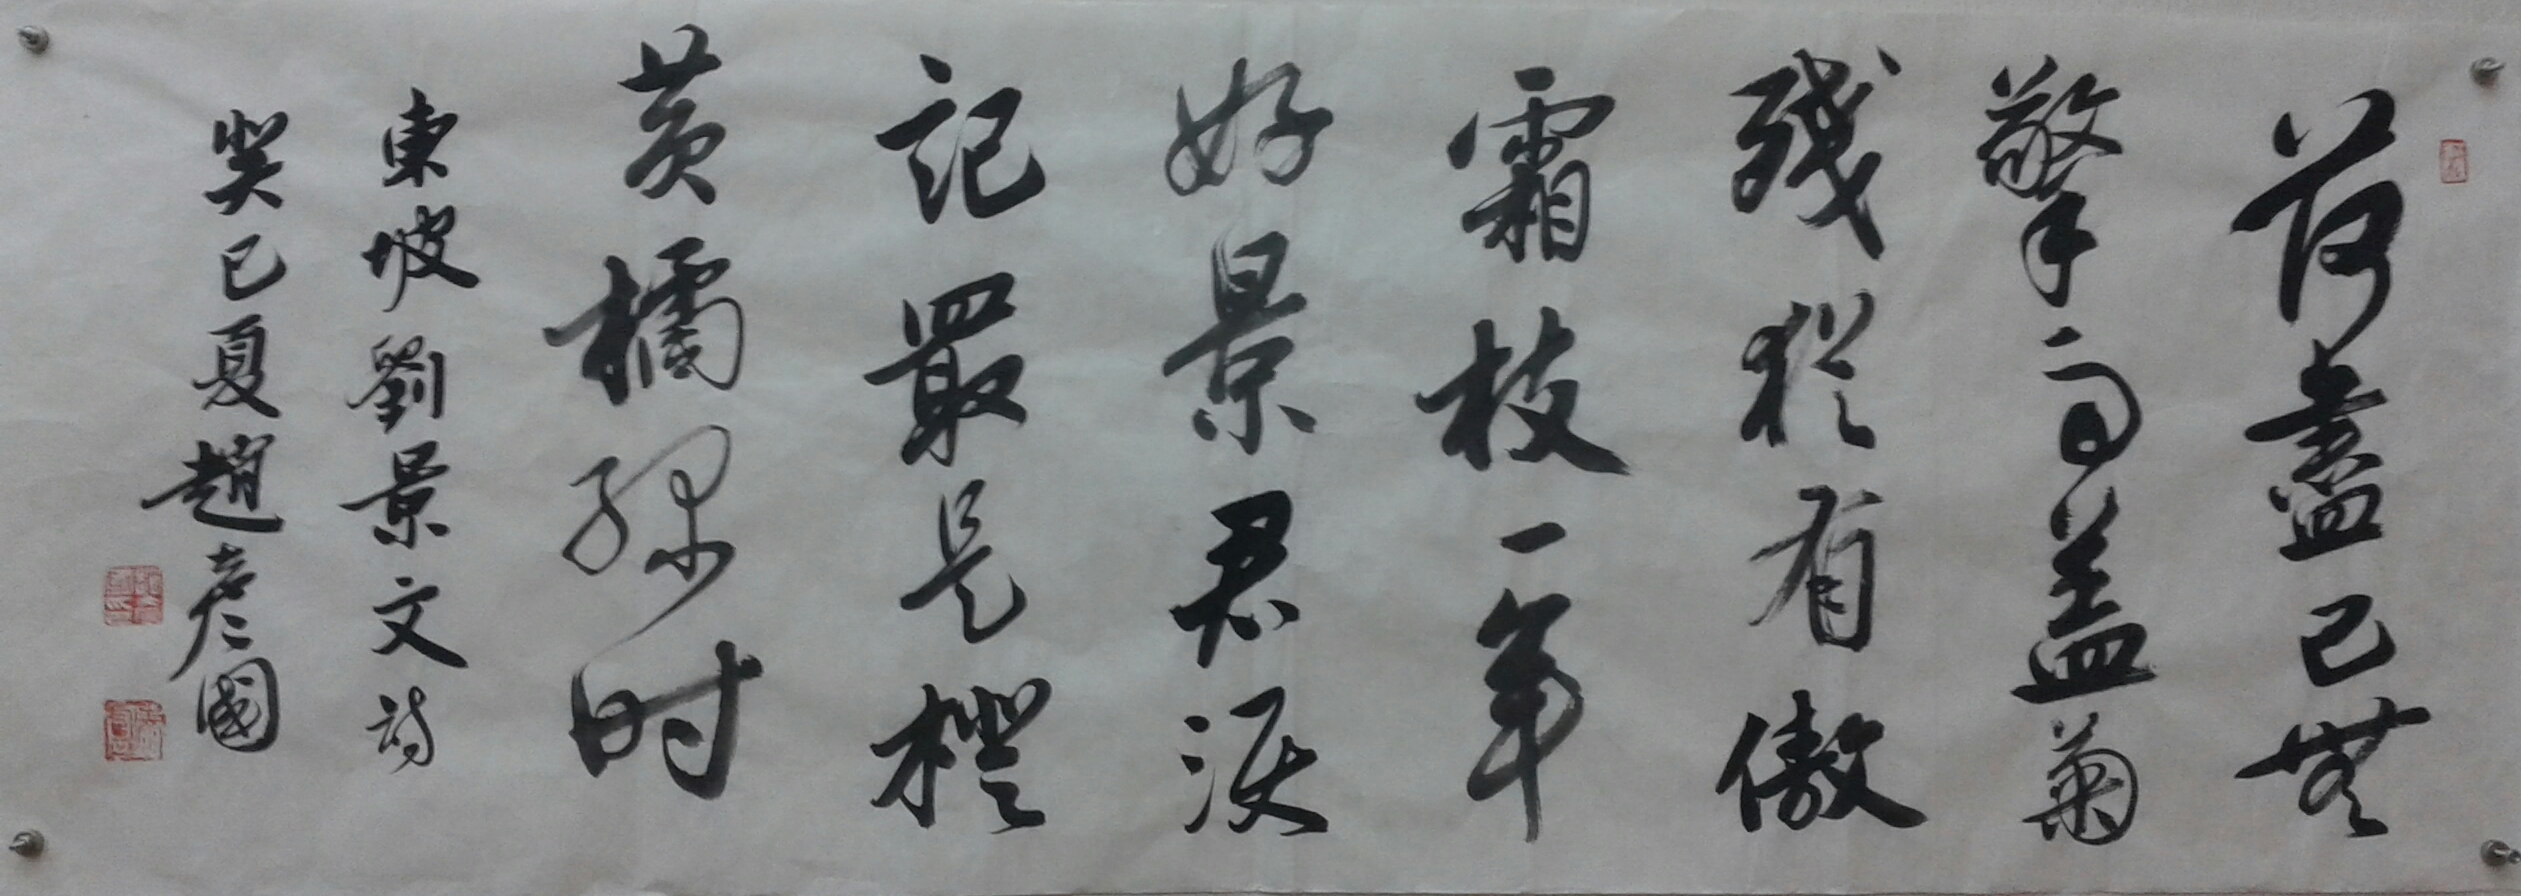 荷盡已無
擎雨蓋菊
殘猶有傲
霜枝一年
好景君須
記最是橙
黃橘綠时
東坡劉景文詩
癸巳夏趙彥國